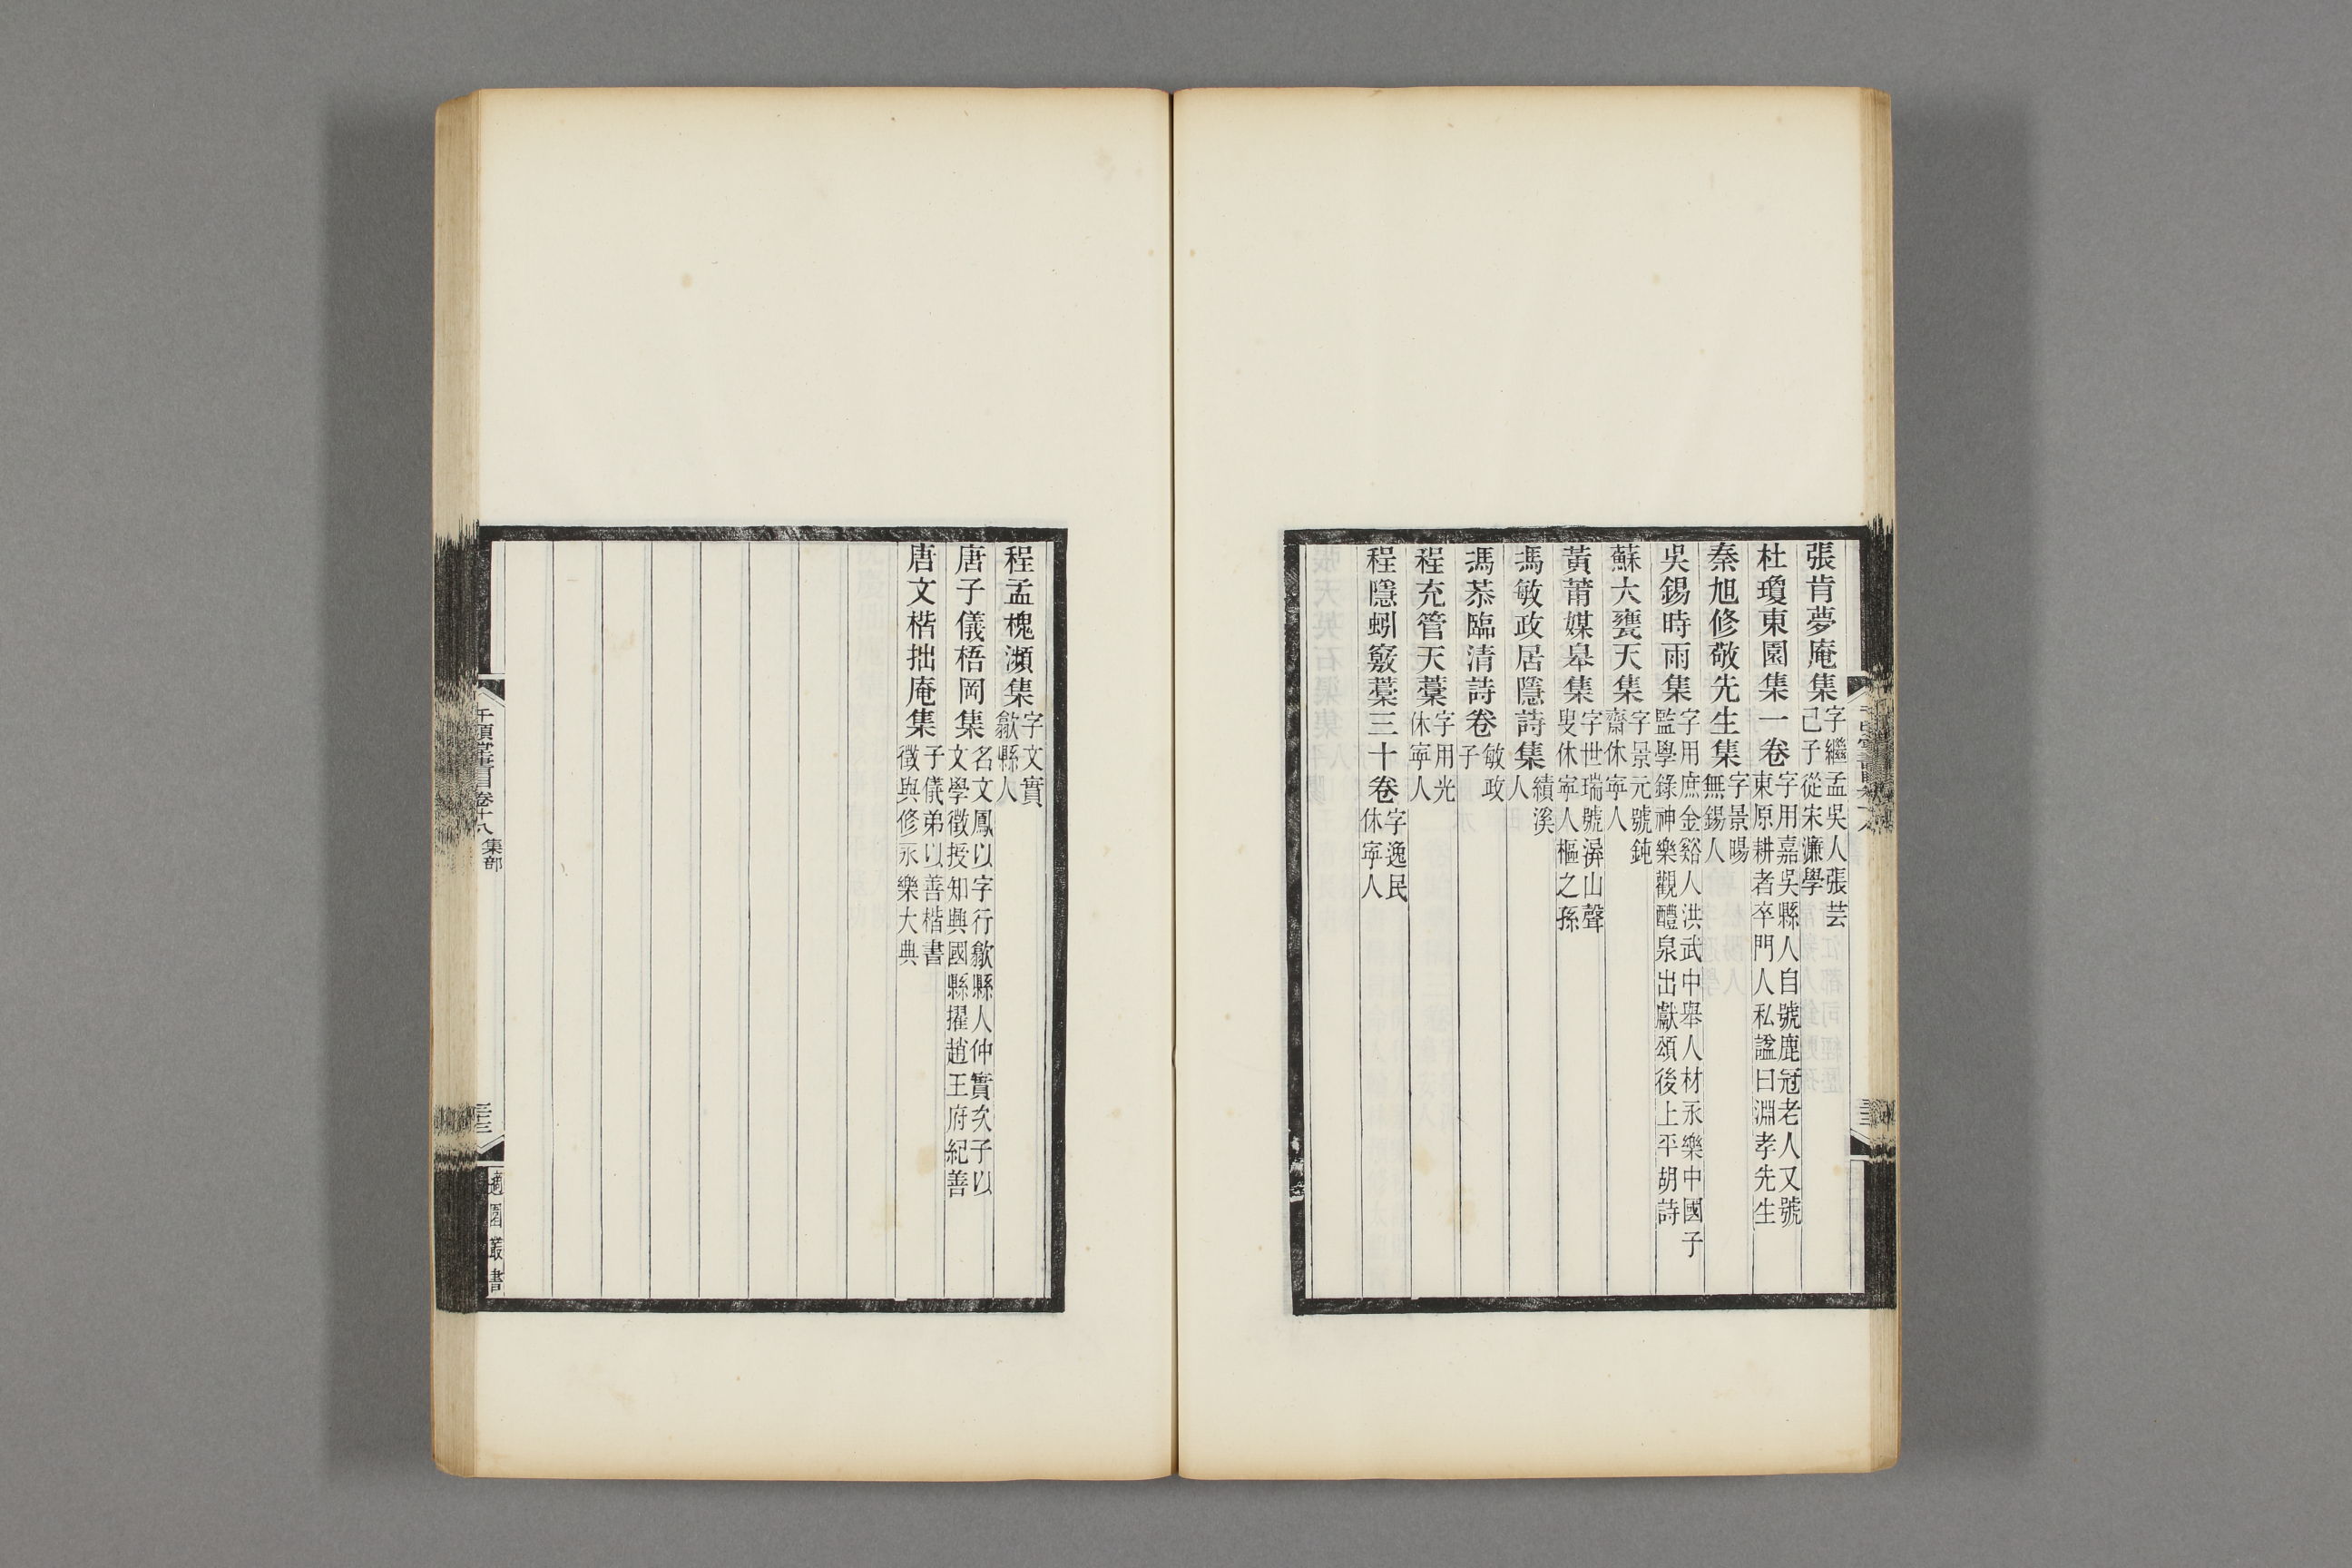 張肯夢庵集字繼孟吳人張芸己子從宋濂學
杜瓊東園集一卷字用嘉吳縣人自號鹿冠老人又號東原耕者卒門人私諡曰淵孝先生
秦旭修敬先生集字景暘無錫人
吳錫時雨集字用庶金谿人洪武中舉人材永樂中國子監學錄神樂觀醴泉出獻頌後上平胡詩
蘇大甕天集字景元號鈍齋休寧人
黃莆媒皋集字世瑞號漭山聲叟休寧人樞之孫
馮敏政居隱詩集績溪人
馮恭臨清詩卷敏政子
程充管天藁字用光休寧人
程隱蚓竅藁三十卷字逸民休寧人
程孟槐瀕集字文實歙縣人
唐子儀梧岡集名文鳳以字行歙縣人仲實次子以文學徵授知興國縣擢趙王府紀善
唐文楷拙庵集子儀弟以善楷書徵與修永樂大典
千頃堂書目卷十八 集部
三十三
適園叢書